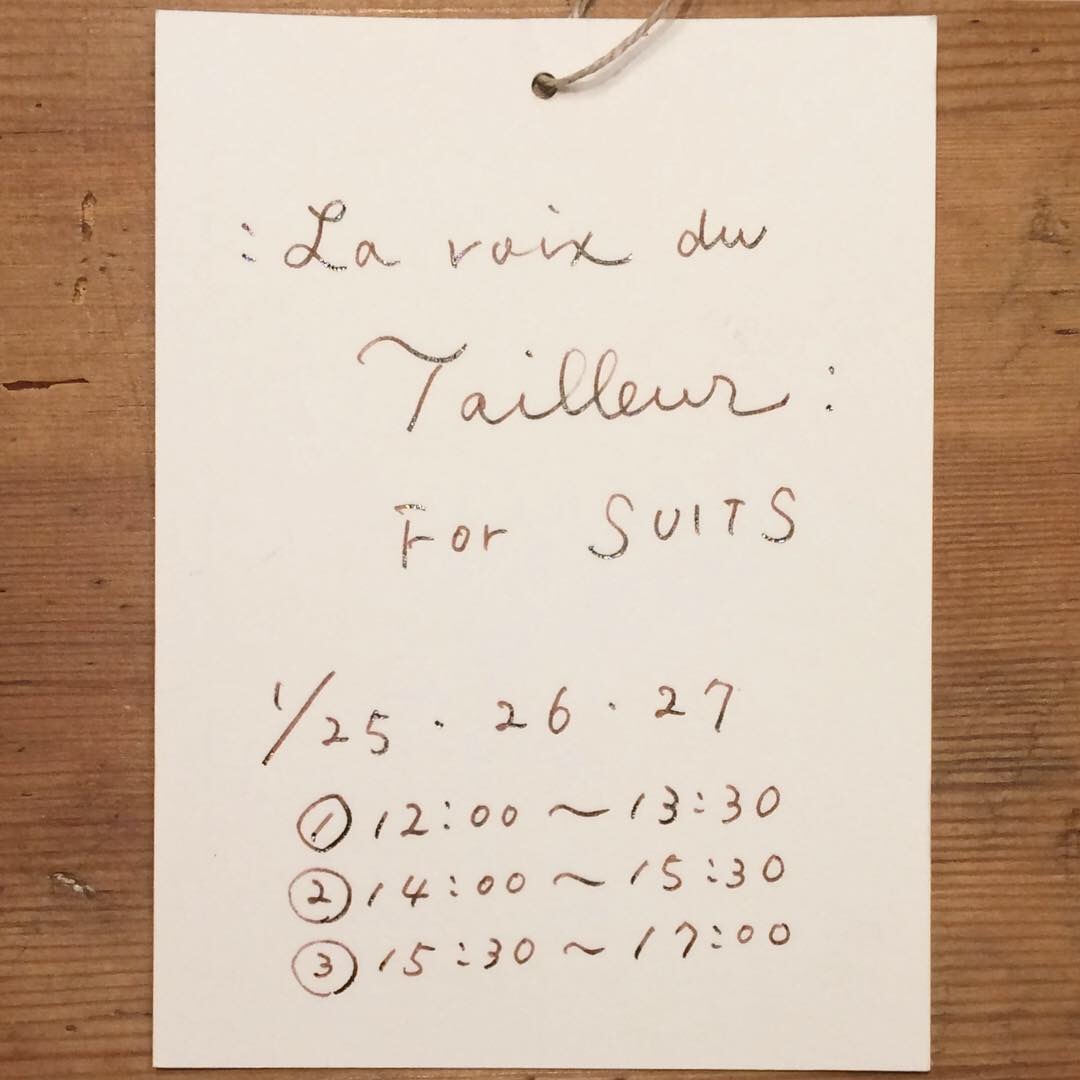 :La voix du
Tailleur:
For SUITS
1/25・26・27
①12:00〜13:30
②14:00〜15:30
③15:30〜17:00